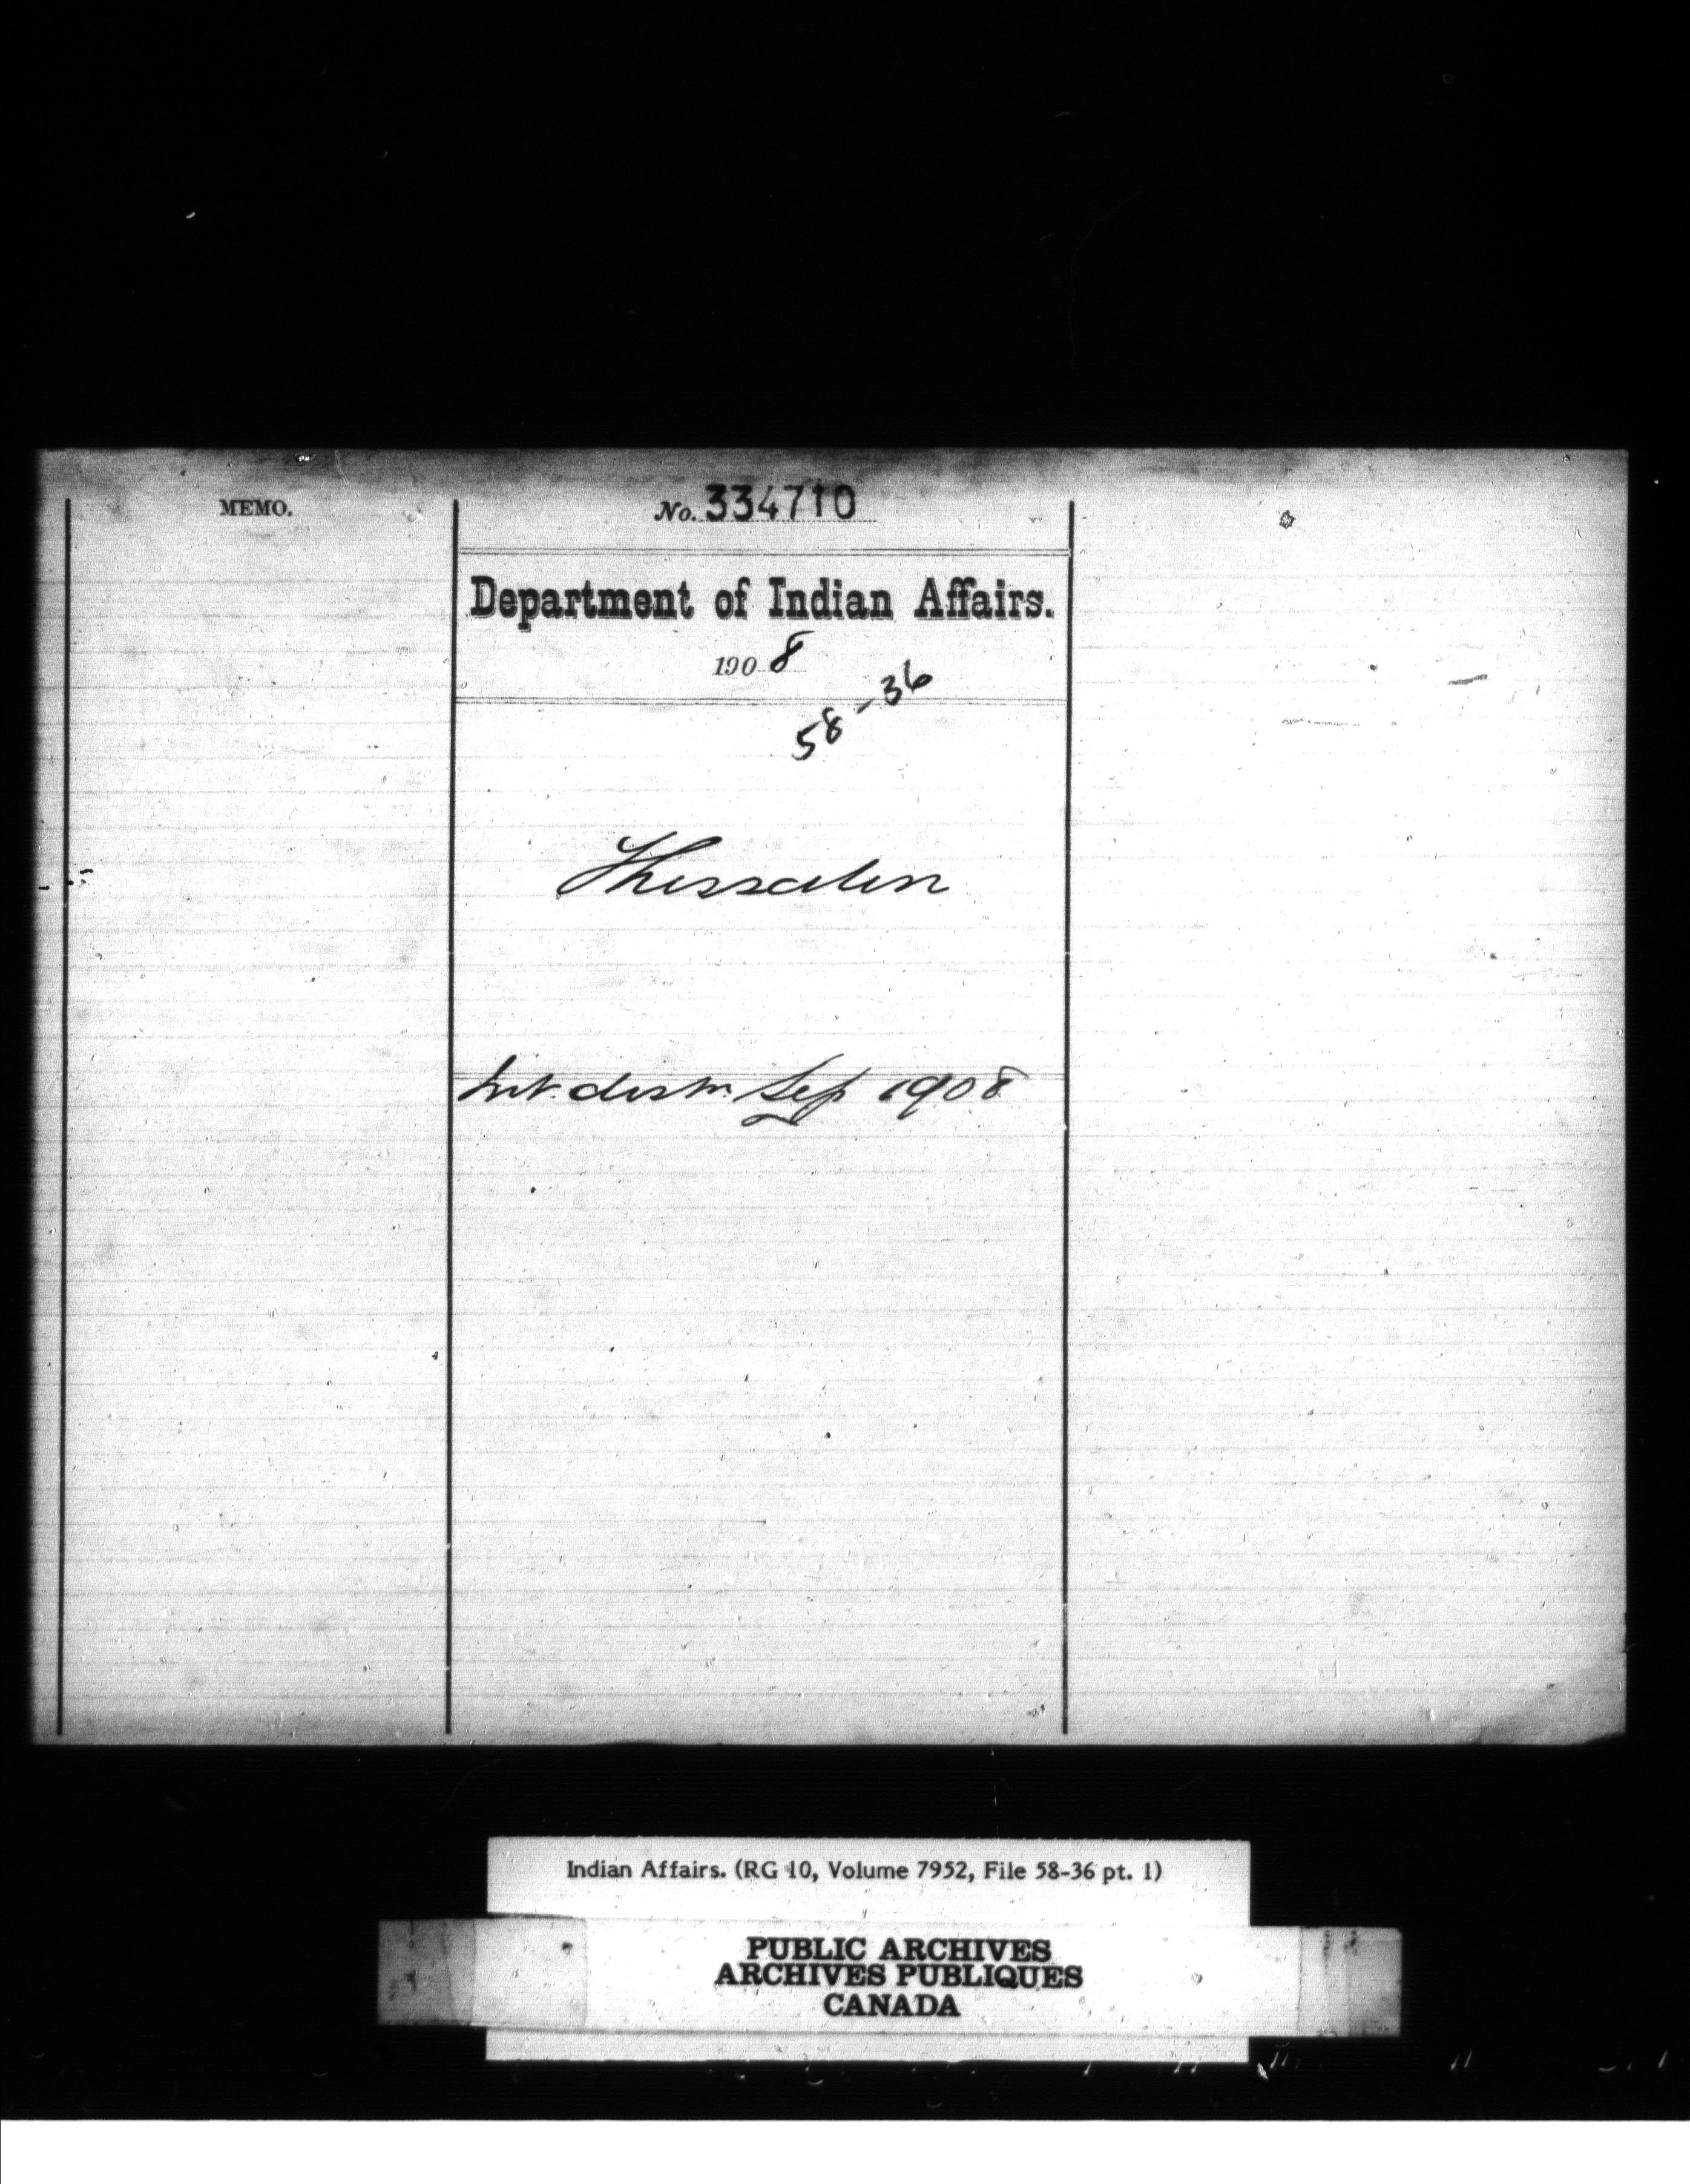 MEMO.
No. 334710
Department of Indian Affairs.
1908
58-36
Thessalon
Int. distn. Sep 1908
Indian Affairs. (RG 10, Volume 7952, File 58-36 pt. 1)
PUBLIC ARCHIVES
ARCHIVES PUBLIQUES
CANADA